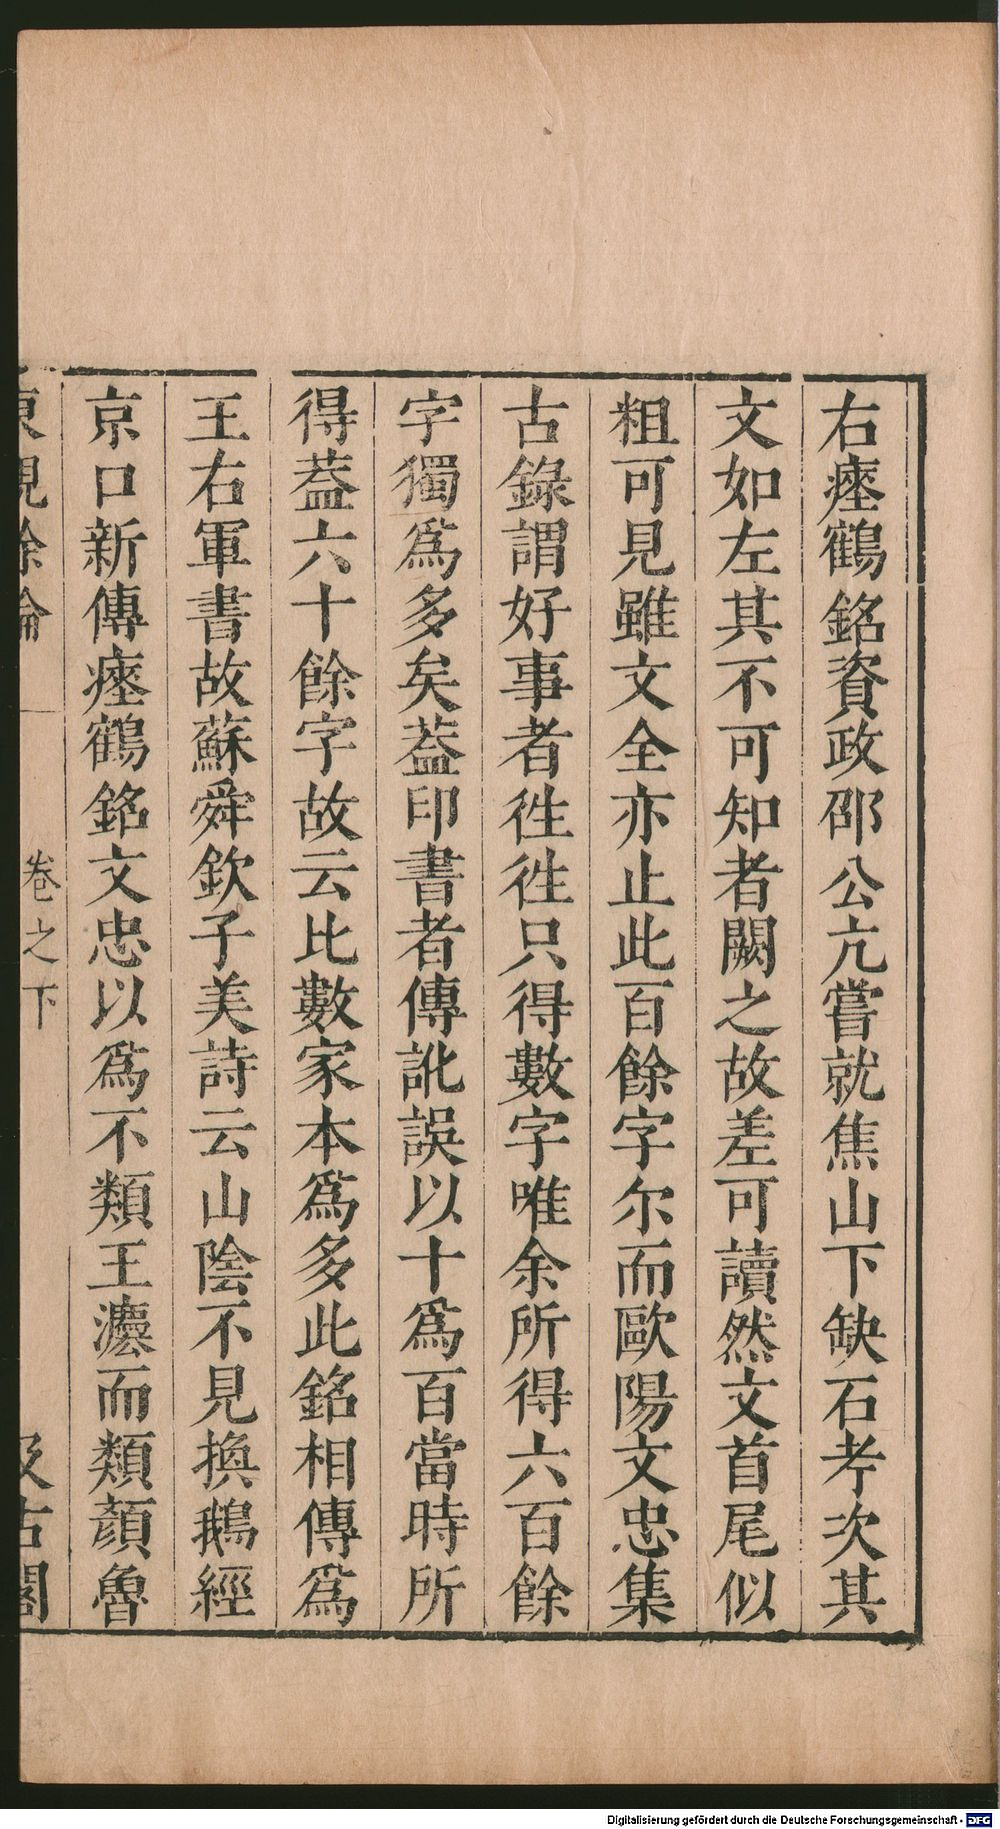 右瘞鶴銘資政邵公亢嘗就焦山下缺石考次其
文如左其不可知者闕之故差可讀然文首尾似
粗可見雖文全亦止此百餘字尔而歐陽文忠集
古錄謂好事者徃徃只得數字唯余所得六百餘
字獨爲多矣葢印書者傳訛誤以十爲百當時所
得葢六十餘字故云比數家本爲多此銘相傳爲
王右軍書故蘇舜欽子美詩云山陰不見換鵝經
京口新傳瘞鶴銘文忠以爲不類王灋而類顏魯
東觀餘論
卷之下
汲古閣
Digitalisierung gefördert durch die Deutsche Forschungsgemeinschaft - DFG